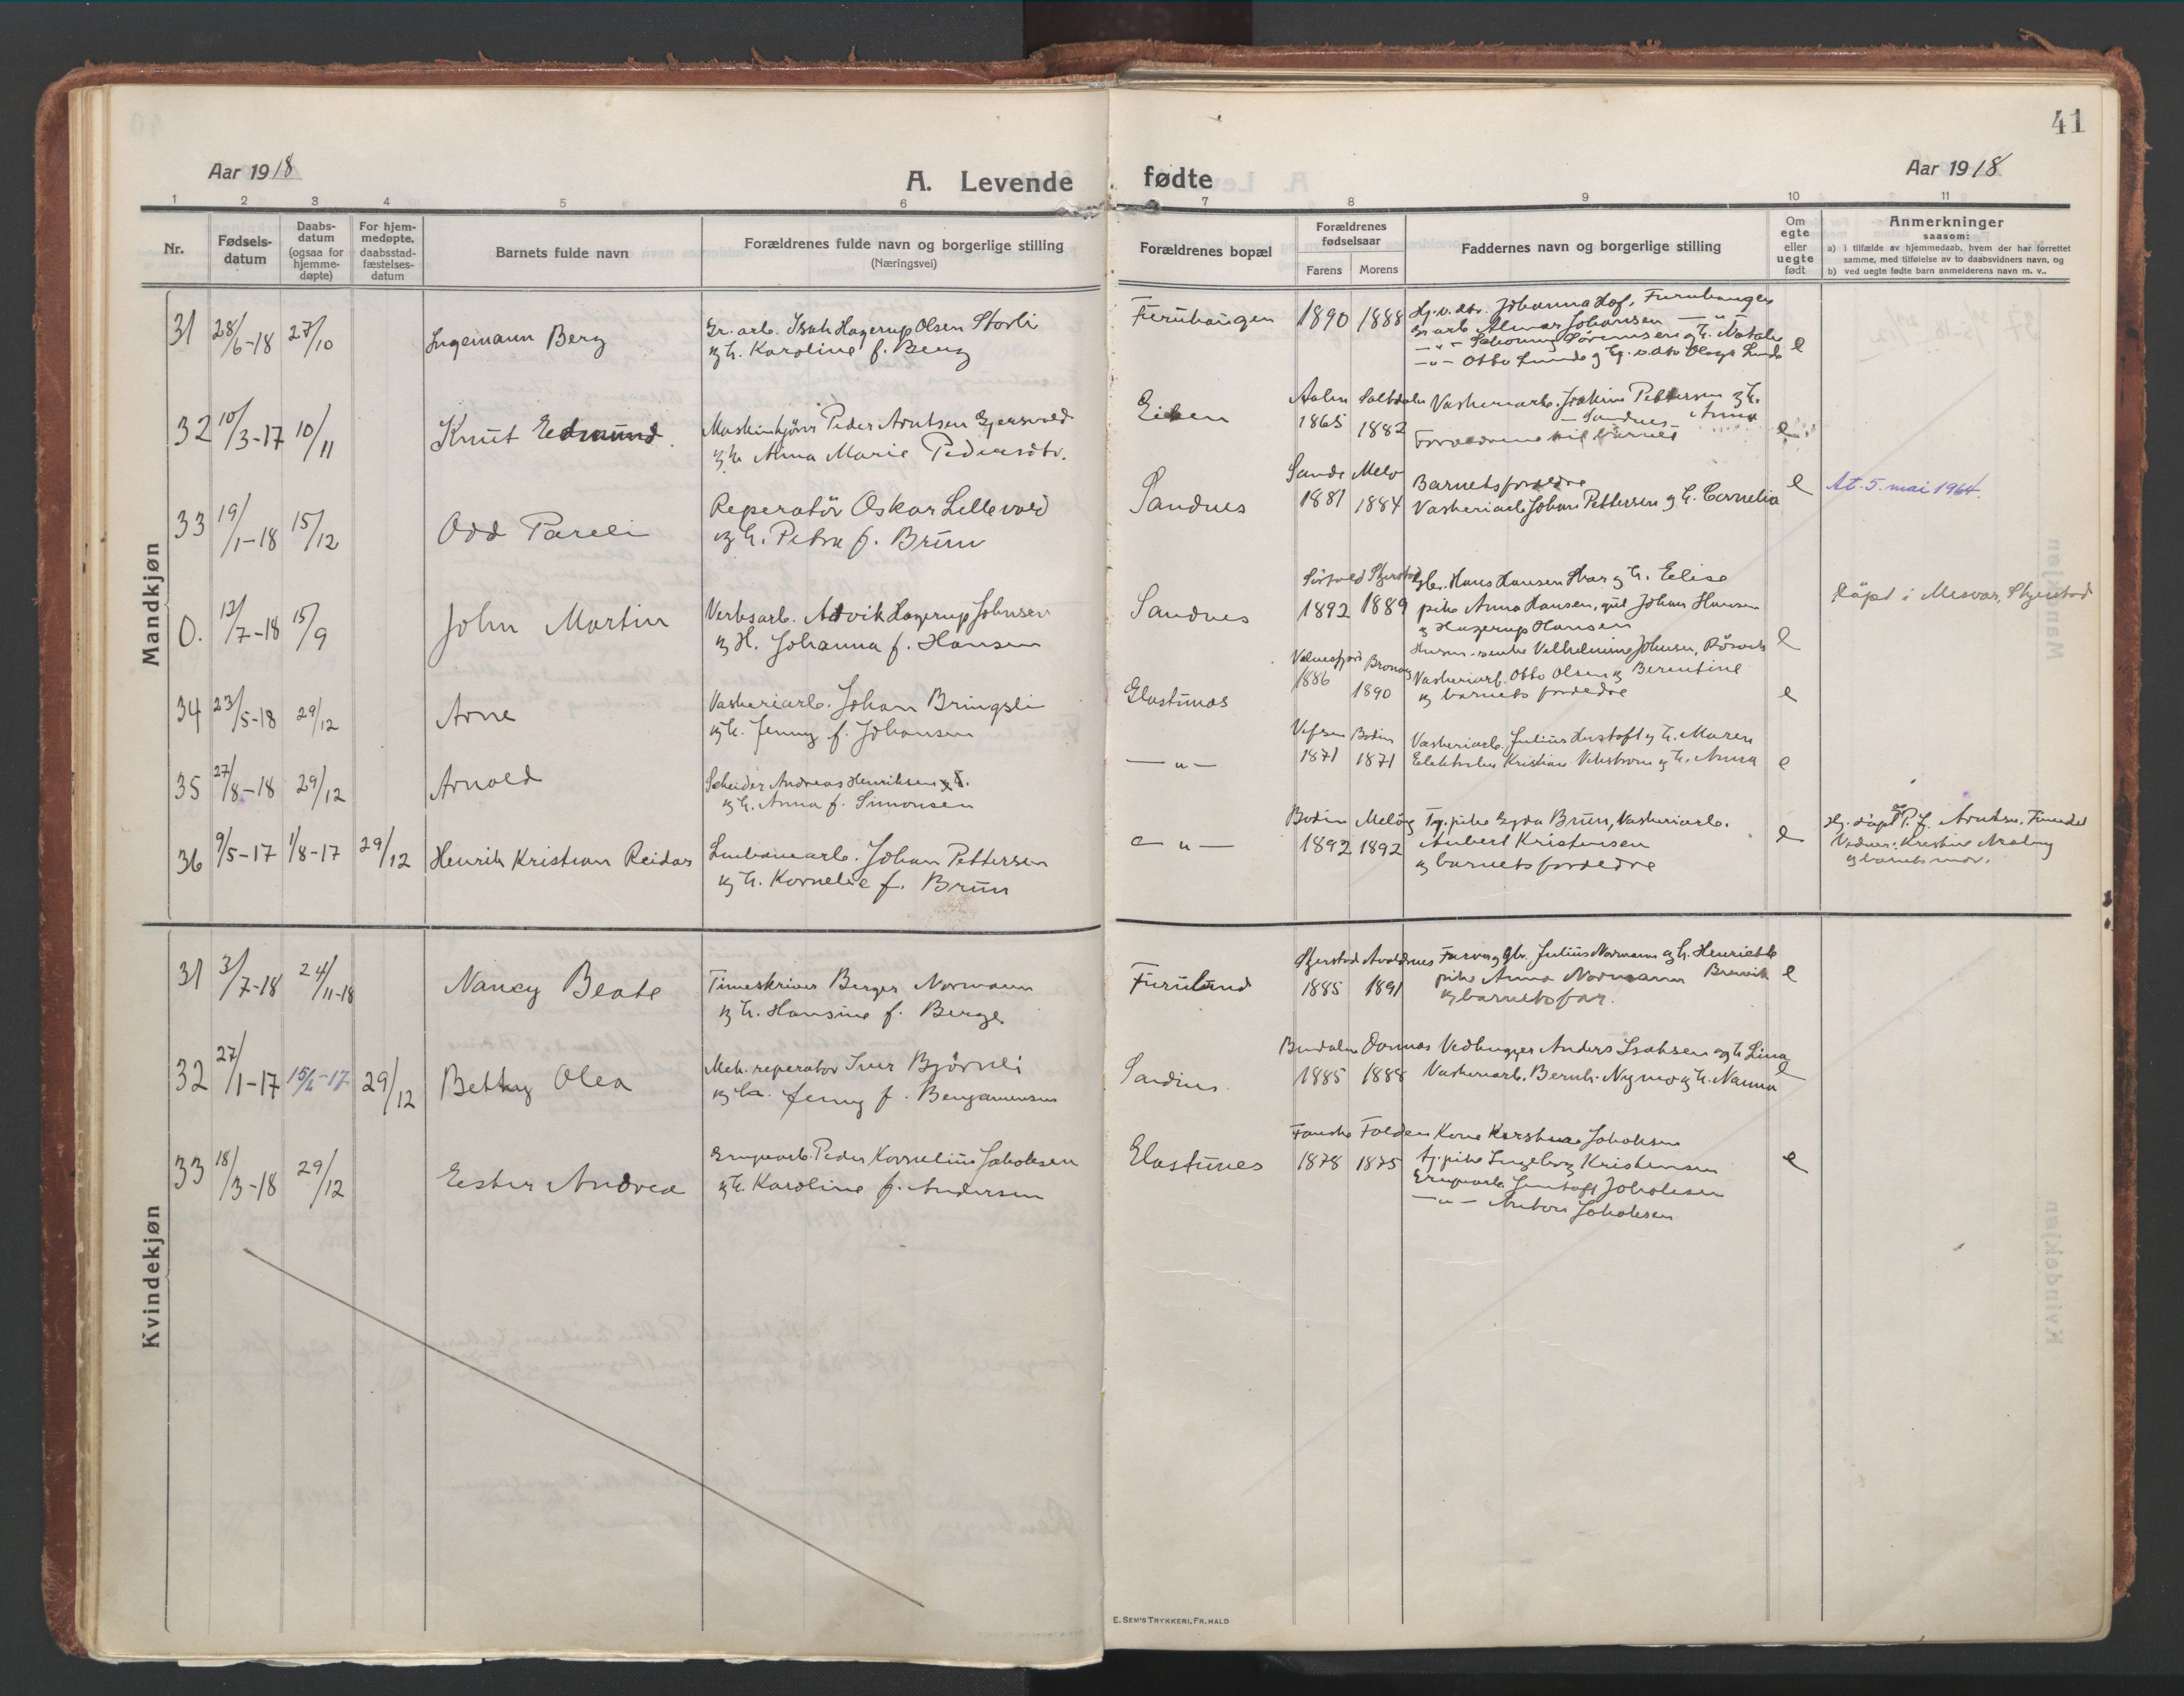 41
Aar 1918
A. Levende
fødte
Aar 1918
1 2 3 4 5 6 7 8 9 10 11
Nr.
Fødsels-
datum
Daabs-
datum
(ogsaa for
hjemme-
døpte)
For hjem-
medøpte,
daabsstad-
fæstelses-
datum
Barnets fulde navn
Forældrenes fulde navn og borgerlige stilling
(Næringsvei)
Forældrenes bopæl
Forældrenes
fødselsaar
Farens Morens
Faddernes navn og borgerlige stilling
Om
egte
eller
uegte
født
Anmerkninger
saasom:
a) i tilfælde av hjemmedaab, hvem der har forrettet
samme, med tilføielse av to daabsvidners navn, og
b) ved uegte fødte barn anmelderens navn m. v..
Mandkjøn
31 28/6-18 27/10 Ingemann Berg
Gr. arb. Isak Hagerup Olsen Storli
og h. Karoline f. Berg
Furuhaugen 1890 1888
Johanna Hof, Furuhaugen
Gr. arb. Almar Johansen — " —
— " — Sørensen og h. Natalie
— " — Otto Lunde og Lunde e
32 10/3-17 10/11 Knut Edmund.
Maskinkjører Peder Arntsen Gjersvold
og h. Anna Marie Pedersdtr.
Saltdalen
1865 1882
Vaskeriarb. Pettersen og h.
— Sandnes — Anna
e
33 19/1-18 15/12 Odd Pareli
Reperatör Oskar Lillevold
og h. Petra f. Brun
Sandnes
Sande Melø
1881 1884
Barnets foreldre
Vaskeriarb. Johan Pettersen og h. Cornelia e
At. 5. mai 1964.
0. 12/7-18 15/9 John Martin
Verksarb. Advik Hagerup Johnsen
og H. Johanna f. Hansen
Sandnes
Skjerstad
1892 1889
Gbr. Hans Hansen og h. Elise
pike Anna Hansen, Johan Hansen
og Hagerup Hansen
Vilhelmine Johnsen, e
döpt i Misvær, Skjerstad
34 23/5-18 29/12 Arne
Vaskeriarb. Johan Bringsli
og h. Jenny f. Johansen
Glastunes
1886 1890
Vaskeriarb. Otto Olsen og Berentine
og barnets foreldre e
35 27/8-18 29/12 Arnold
Scheider Andreas Henriksen
og h. Anna f. Simonsen
— " —
Vefsen Bodin
1871 1871
Vaskeriarb. Julius Gustaft og h. Maren
Kristian og h. Anna e
36 9/5-17 1/8-17 29/12 Henrik Kristian Reidar
Johan Pettersen
og h. Kornelie f. Brun
— " —
Bodin Meløy
1892 1892
Tj. pike Gyda Brun, Vaskeriarb.
Anbert Kristensen
og barnets foreldre e
Hj. døpt av P. J. Arntsen, Finneid
Vidner: Kristine
og barnets mor.
Kvindekjøn
31 3/7-18 24/11-18 Nancy Beate
Timeskriver Berger Normann
og h. Hansine f. Berge
Furulund
Skjerstad
1885 1891
Julius Normann og h. Henriette
pike Anna Normann Brevik
og barnets far. e
32 27/1-17 15/6-17 29/12 Betty Olea
Mek. reperatør Iver Bjørnli
og h. Jenny f. Benjaminsen
Bindalen Dønnes
1885 1888
Vedhugger Anders Isaksen og h. Lina
Vaskeriarb. Bernh. Nymo og h. Nanna e
33 18/3-18 29/12 Ester Andrea
Grupearb. Peder Kornelius Jakobsen
og h. Karoline f. Andersen
Glastunes
Fauske Folden
1878 1875
Kone Jakobsen
tj. pike Ingeborg Kristensen
Grupearb. Gustaft Jakobsen
— " — Anton Jakobsen e
E. SEM'S TRYKKERI, FR.HALD